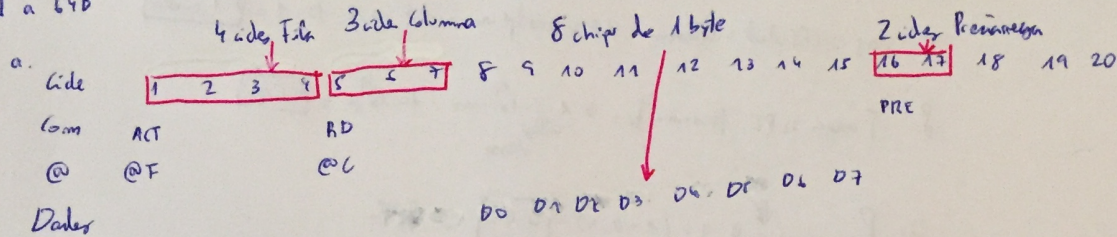 a 64B
4 cicles Fila 3 cicles Columna 8 chips de 1 byte 2 cicles Precàrrega
a.
Cicle 1 2 3 4 5 6 7 8 9 10 11 12 13 14 15 16 17 18 19 20
Com ACT RD PRE
@ @F @C
Dades D0 D1 D2 D3 D4 D5 D6 D7